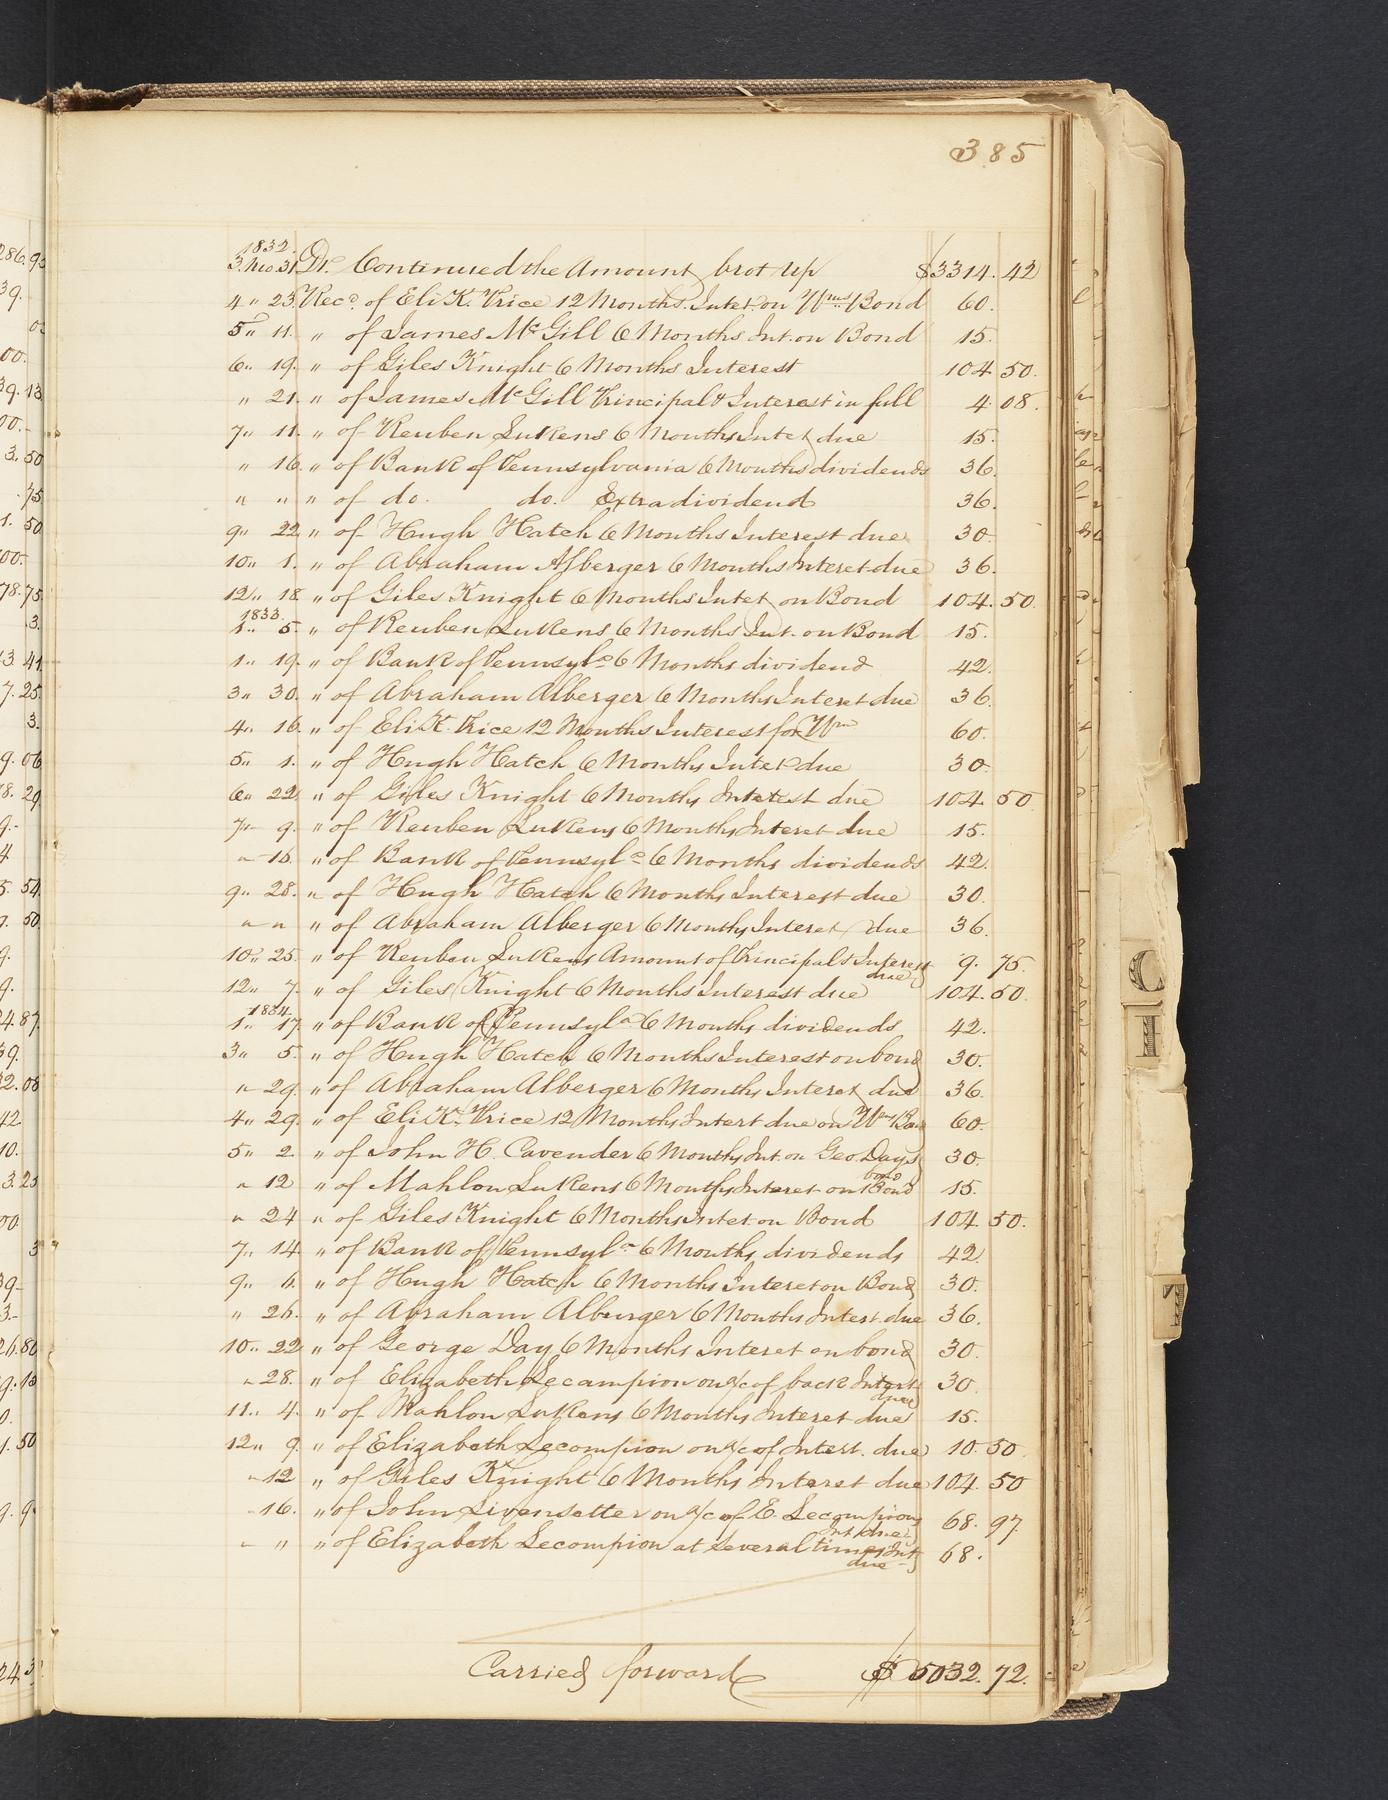 385
1832.
3 Mo. 31 Dr. Continued the Amount brot up $3314. 42
4 " 23 Recd. of Eli K. Price 12 Months Intet. on Wms Bond 60.
5 " 11. " of James McGill 6 Months Int. on Bond 15.
6 " 19. " of Giles Knight 6 Months Interest 104 50.
" 21. " of James McGill Principal & Interest in full 4 08.
7 " 11. " of Reuben Lukens 6 Months Intet due 15.
" 16. " of Bank of Pennsylvania 6 Months dividends 36.
" " " of do. do. Extra dividend 36.
9 " 22 " of Hugh Hatch 6 Months Interest due 30.
10 " 1. " of Abraham Alberger 6 Months Interet due 36.
12 " 18. " of Giles Knight 6 Months Intet on Bond 104. 50.
1833.
1 " 5. " of Reuben Lukens 6 Months Int. on Bond 15.
1 " 19. " of Bank of Pennsyla 6 Months dividend 42.
3 " 30. " of Abraham Alberger 6 Months Interet due 36.
4 " 16. " of Eli K. Price 12 Months Interest for Wm 60.
5 " 1. " of Hugh Hatch 6 Months Intet due 30.
6 " 22. " of Giles Knight 6 Months Interest due 104. 50.
7 " 9. " of Reuben Lukens 6 Months Interet due 15.
" 16. " of Bank of Pennsyla 6 Months dividends 42.
9 " 28. " of Hugh Hatch 6 Months Interest due 30.
" " " of Abraham Alberger 6 Months Interet due 36.
10 " 25. " of Reuben Lukens Amount of Principal & Interest 9. 75.
due
12 " 7. " of Giles Knight 6 Months Interest due 104. 50.
1834.
1 " 17. " of Bank of Pennsyla 6 Months dividends 42.
3 " 5. " of Hugh Hatch 6 Months Interest on bond 30.
" 29. " of Abraham Alberger 6 Months Interet due 36.
4 " 29. " of Eli K. Price 12 Months Intert due on Wms Bon 60.
5 " 2. " of John H. Cavender 6 Months Int. on Geo. Days 30.
bond
" 12 " of Mahlon Lukens 6 Months Interet on Bond 15.
" 24 " of Giles Knight 6 Months Intet on Bond 104. 50.
7 " 14. " of Bank of Pennsyla 6 Months dividends 42.
9 " 6. " of Hugh Hatch 6 Months Interet on Bond 30.
" 26. " of Abraham Alburger 6 Months Interst due 36.
10 " 22 " of George Day 6 Months Interet on bond 30.
" 28. " of Elizabeth Lecampion on a/c of back Interst 30.
due
11 " 4. " of Mahlon Lukens 6 Months Interet due 15.
12 " 9. " of Elizabeth Lecompion on a/c of Interst. due 10. 50.
" 12 " of Giles Knight 6 Months Interet due 104. 50
" 16. " of John Livensetter on a/c of E. Lecompions 68. 97.
Int due
" " " of Elizabeth Lecompion at several times Int 68.
due
Carried forward $ 5032. 72.